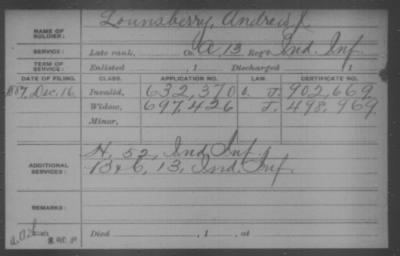 NAME OF SOLDIER: Lounsberry, Andrew J.
SERVICE: Late rank, Co. A, 13 Reg't Ind. Inf.
TERM OF SERVICE: Enlisted , 1 Discharged , 1
DATE OF FILING. CLASS. APPLICATION NO. LAW. CERTIFICATE NO.
1887, Dec. 16 Invalid, 632,370 J. 902,669
Widow, 697,426 J. 498,969
Minor,
ADDITIONAL SERVICES: H, 52, Ind Inf.
13, Ind. Inf.
REMARKS:
Died , 1 , at